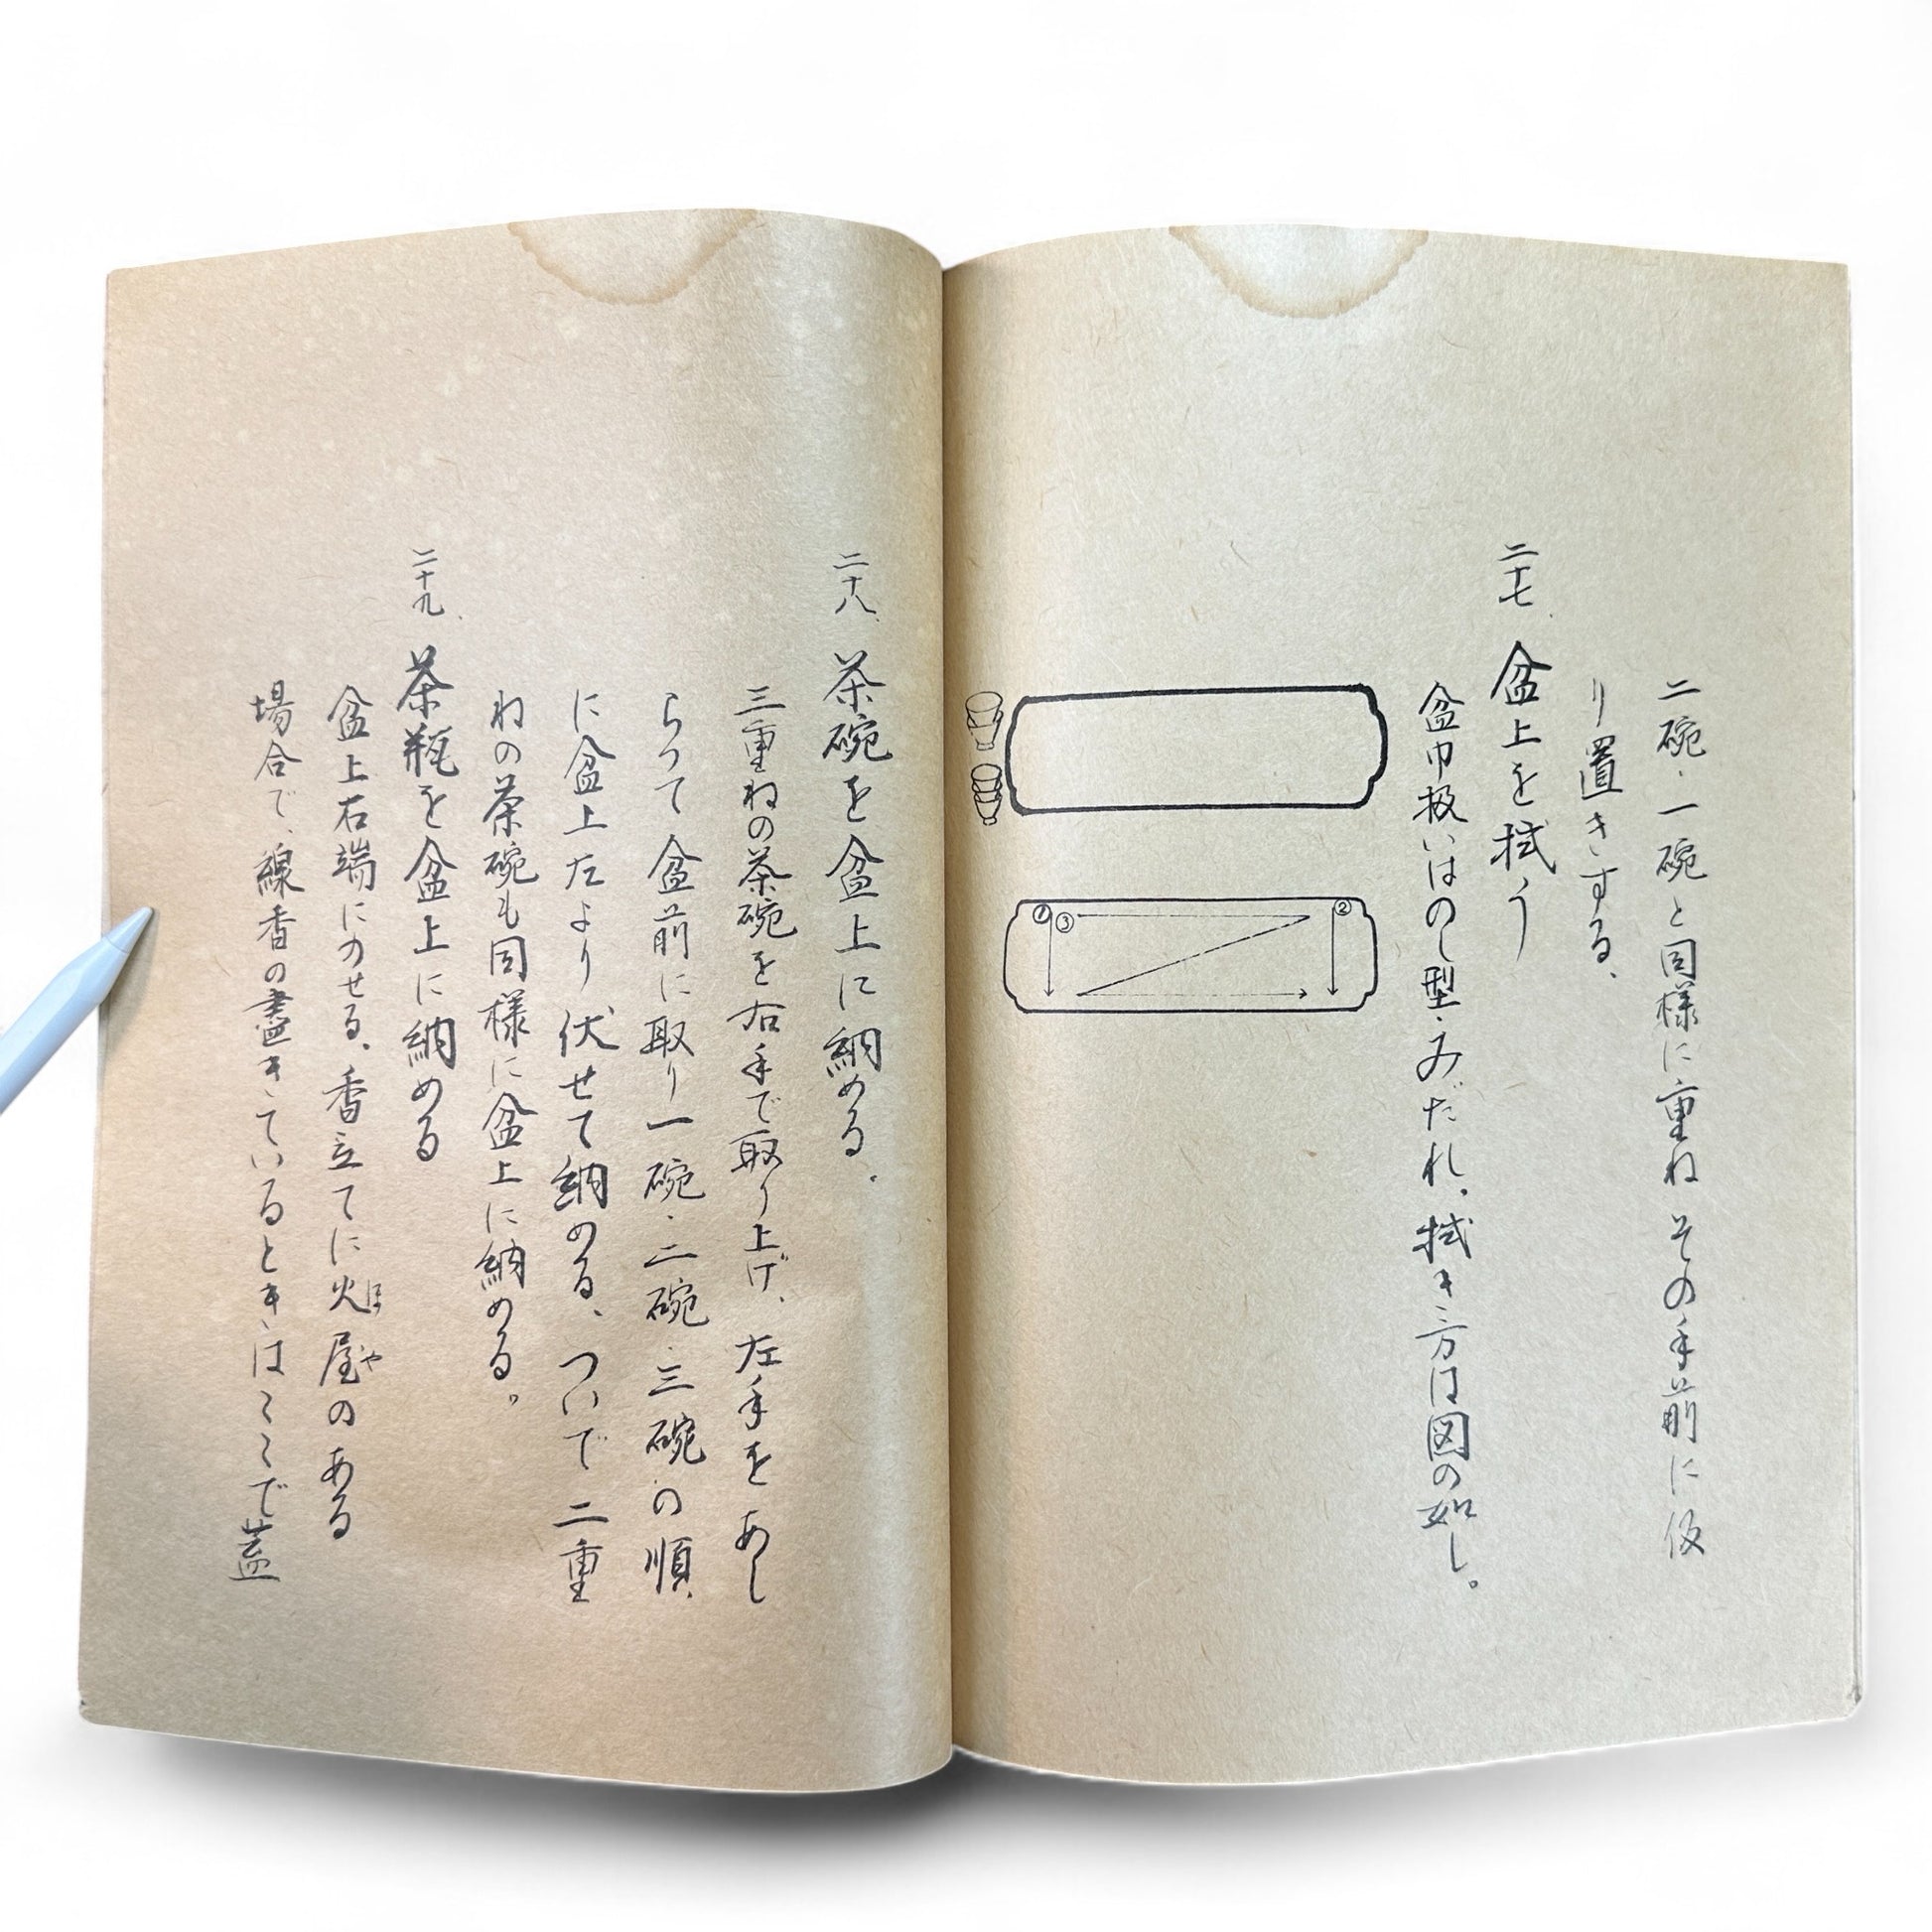 二碗・一碗と同様に重ね その手前に仮
り置きする、
二十七、盆上を拭う
盆巾扱いはのし型・みだれ、拭き方は図の如し。
① ③ ②
二十八、茶碗を盆上に納める、
三重ねの茶碗を右手で取り上げ、左手をあし
らって 盆前に取り一碗・二碗・三碗の順、
に盆上左より 伏せて納める、ついで 二重
ねの茶碗も同様に盆上に納める。
二十九、茶瓶を盆上に納める
盆上右端にのせる、香立てに火屋のある
ほ や
場合で、線香の盡きているときはここで蓋